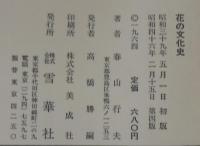 花の文化史
昭和三十九年 五月一日 初版
昭和四十六年 二月十五日 第四版
© 一九六四 定価 六八〇円
著者 春山行夫
東京都豊島区巣鴨六ノ一二五三
発行者 高橋勝嗣
印刷所 株式会社 美成社
発行所 株式会社 雪華社
東京都千代田区神田錦町二の九
電話 東京(二九一)七五七七
振替 東京 四二五〇